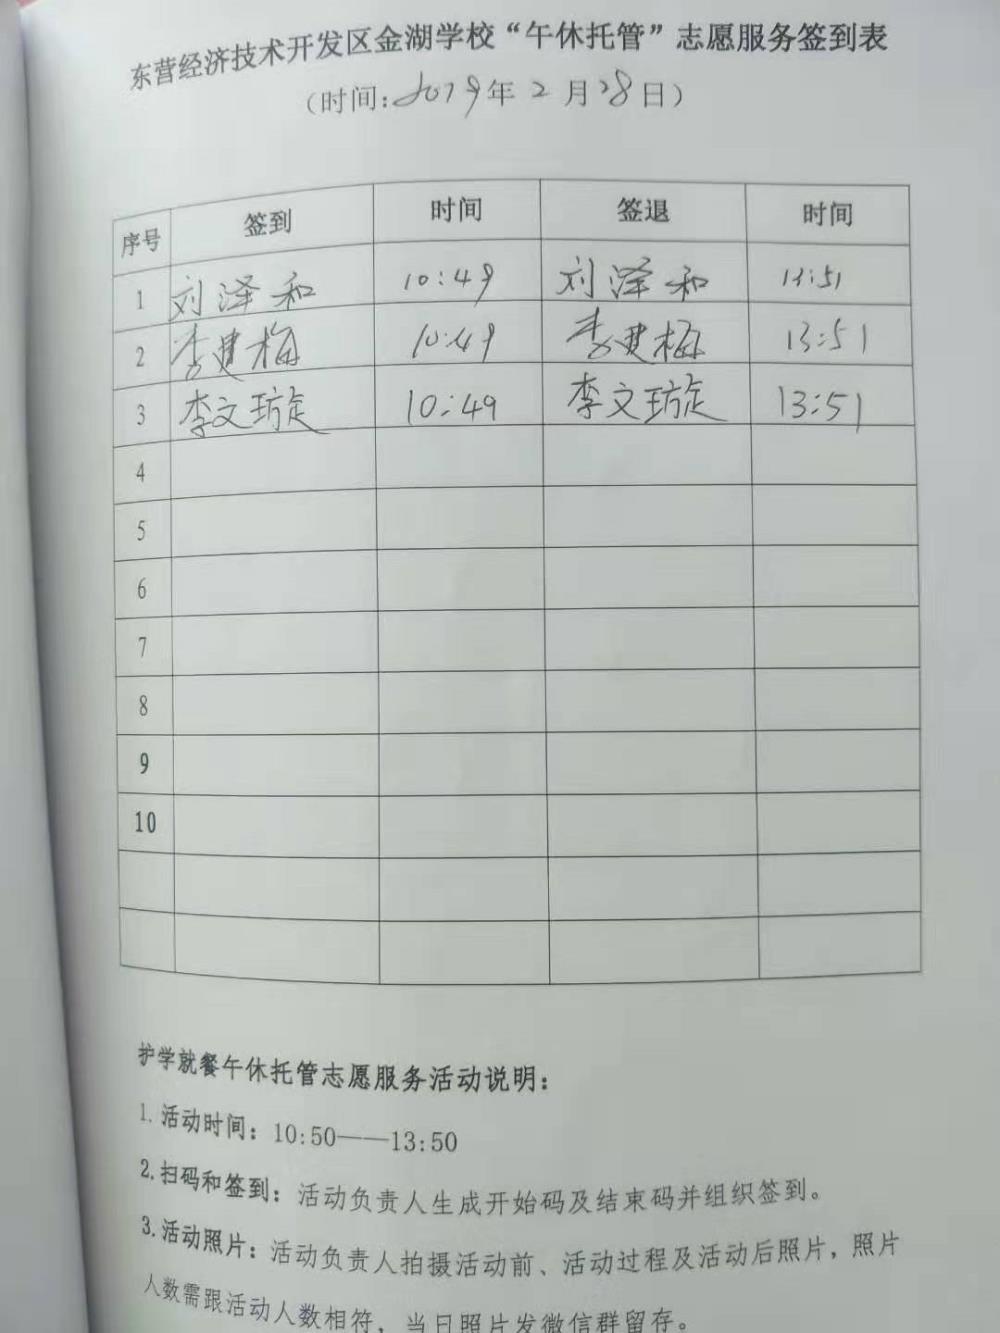 东营经济技术开发区金湖学校“午休托管”志愿服务签到表
（时间:2019年2月28日）
序号 签到 时间 签退 时间
1 刘泽和 10:49 刘泽和 13:51
2 李建梅 10:49 李建梅 13:51
3 李文璇 10:49 李文璇 13:51
4
5
6
7
8
9
10
护学就餐午休托管志愿服务活动说明：
1.活动时间：10:50——13:50
2.扫码和签到：活动负责人生成开始码及结束码并组织签到。
3.活动照片：活动负责人拍摄活动前、活动过程及活动后照片，照片
人数需跟活动人数相符，当日照片发微信群留存。